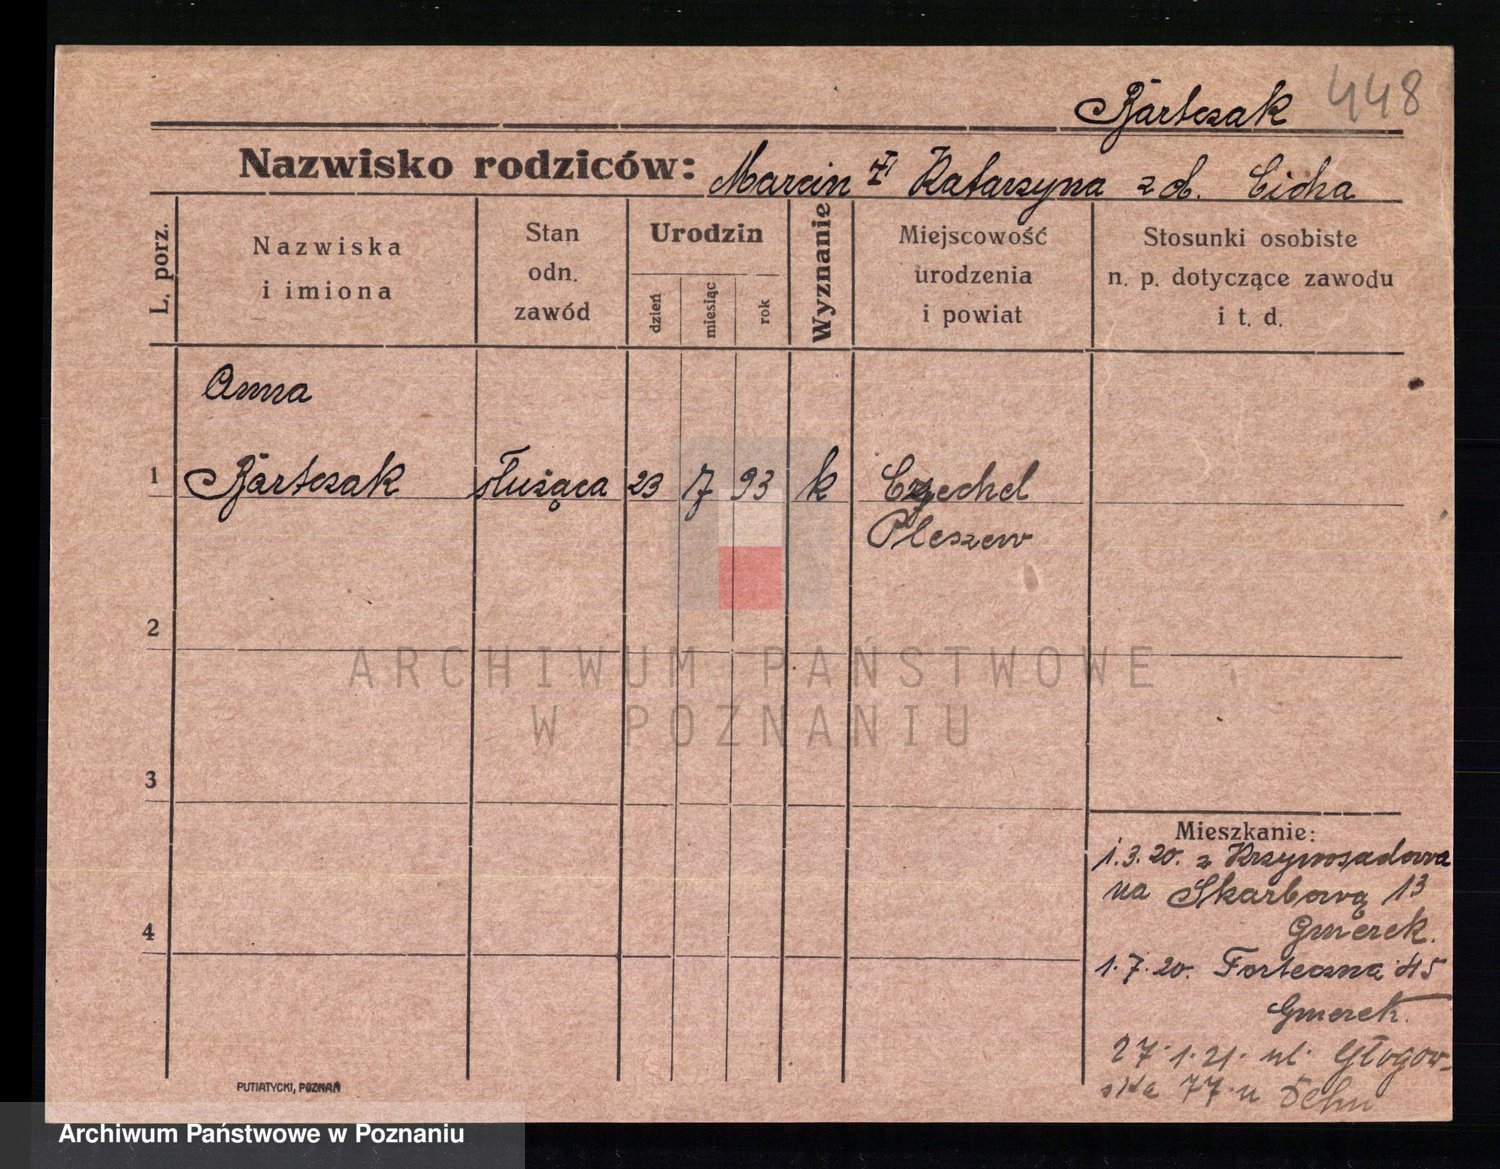 Bartczak 448
Nazwisko rodziców: Marcin Katarzyna z d. Cicha
L. porz.
Nazwiska
i imiona
Stan
odn.
zawód
Urodzin
dzień
miesiąc
rok
Wyznanie
Miejscowość
urodzenia
i powiat
Stosunki osobiste
n. p. dotyczące zawodu
i t. d.
Anna
1 Bartczak służąca 23 7 93 k Czechel
Pleszew
2
ARCHIWUM PAŃSTWOWE
W POZNANIU
3
4
Mieszkanie:
1.3.20. z Krzywosądowa
na Skarbową 13
Gmerek.
1.7.20. Forteczna 45
Gmerek.
27.1.21. ul. Głogow-
ska 77 u
PUTIATYCKI, POZNAŃ
Archiwum Państwowe w Poznaniu